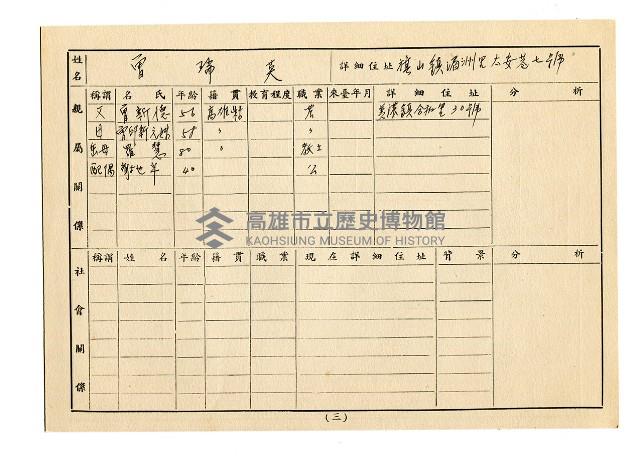 姓名 曾瑞英 詳細住址 旗山鎮湄洲里太安巷七號
親屬關係
稱謂 名氏 年齡 籍貫 教育程度 職業 來臺年月 詳細住址 分析
父 曾新德 56 高雄縣 農 美濃鎮合和里30號
母 58 〃 〃
岳母 80 〃
配偶 40 公
高雄市立歷史博物館
KAOHSIUNG MUSEUM OF HISTORY
社會關係
稱謂 姓名 年齡 籍貫 職業 現在詳細住址 背景 分析
(三)